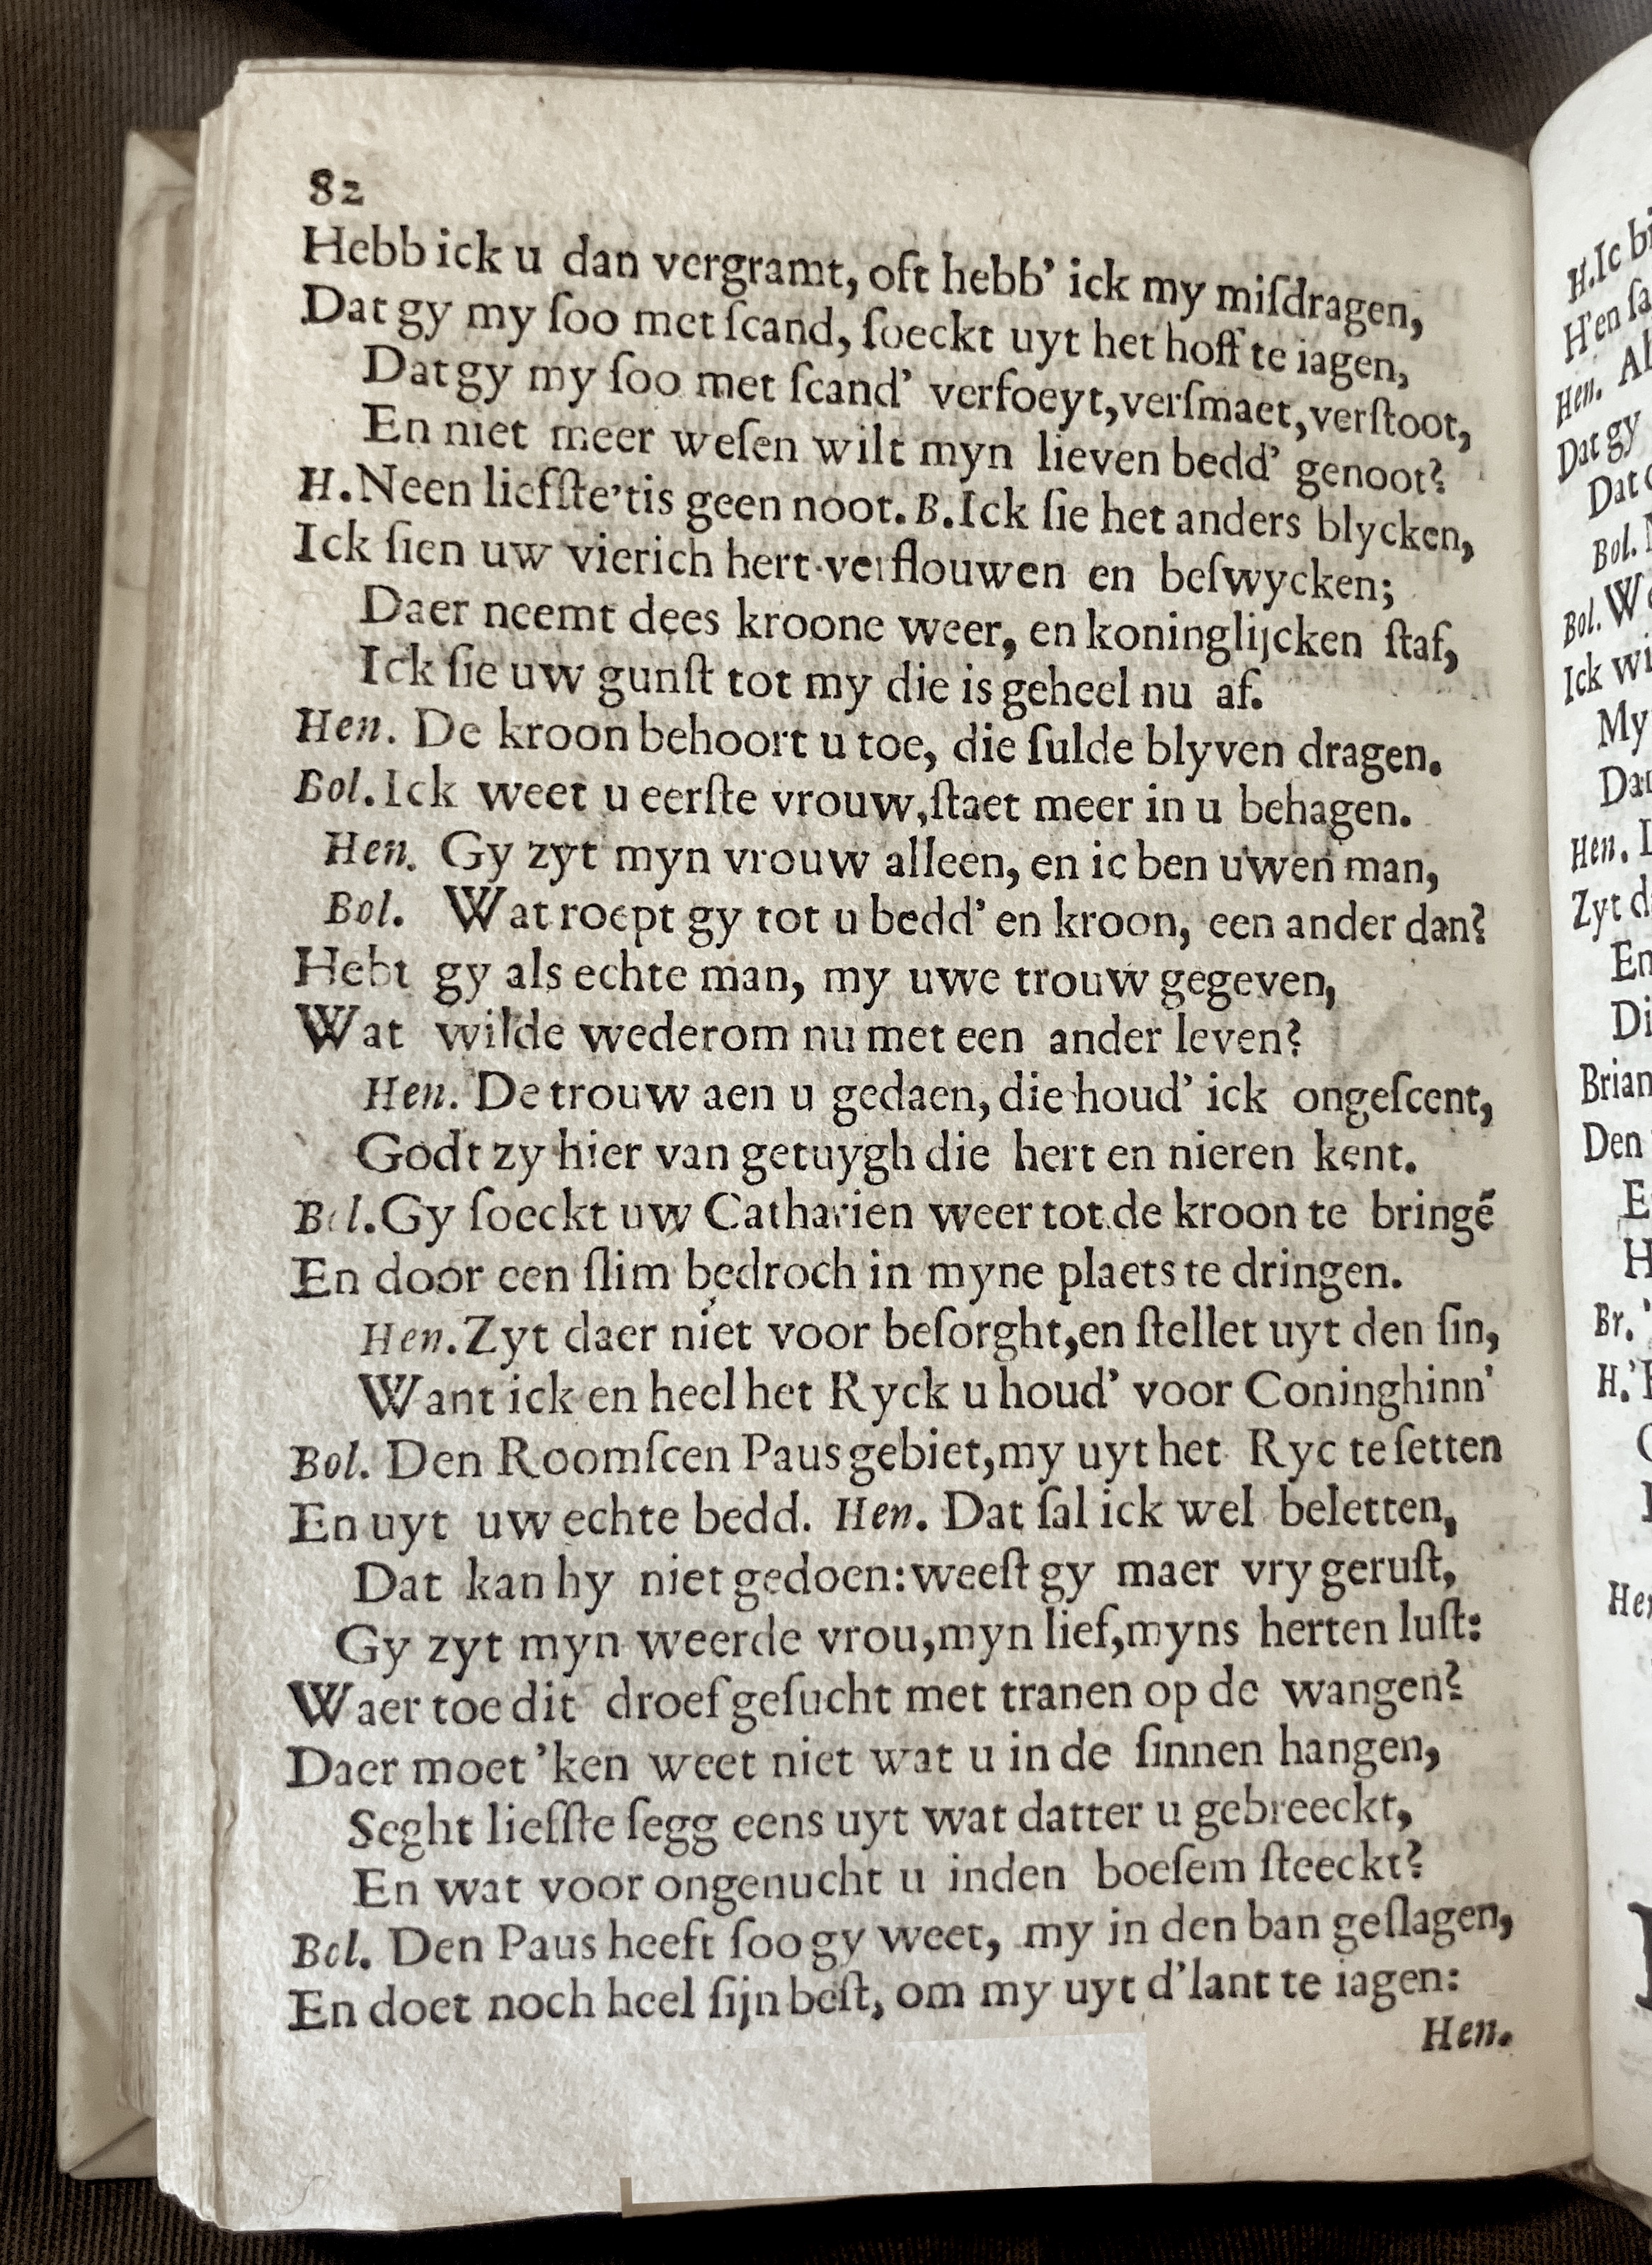 82
Hebb ick u dan vergramt, oft hebb' ick my miſdragen,
Dat gy my ſoo met ſcand, ſoeckt uyt het hoff te iagen,
Dat gy my ſoo met ſcand' verfoeyt, verſmaet, verſtoot,
En niet meer weſen wilt myn lieven bedd' genoot?
H. Neen liefſte 'tis geen noot. B. Ick ſie het anders blycken,
Ick ſien uw vierich hert verflouwen en beſwycken;
Daer neemt dees kroone weer, en koninglijcken ſtaf,
Ick ſie uw gunſt tot my die is geheel nu af.
Hen. De kroon behoort u toe, die ſulde blyven dragen.
Bol. Ick weet u eerſte vrouw, ſtaet meer in u behagen.
Hen. Gy zyt myn vrouw alleen, en ic ben uwen man,
Bol. Wat roept gy tot u bedd' en kroon, een ander dan?
Hebt gy als echte man, my uwe trouw gegeven,
Wat wilde wederom nu met een ander leven?
Hen. De trouw aen u gedaen, die houd' ick ongeſcent,
Godt zy hier van getuygh die hert en nieren kent.
Bol. Gy ſoeckt uw Catharien weer tot de kroon te bringẽ
En door een ſlim bedroch in myne plaets te dringen.
Hen. Zyt daer niet voor beſorght, en ſtellet uyt den ſin,
Want ick en heel het Ryck u houd' voor Coninghinn'
Bol. Den Roomſcen Paus gebiet, my uyt het Ryc te ſetten
En uyt uw echte bedd. Hen. Dat ſal ick wel beletten,
Dat kan hy niet gedoen: weeſt gy maer vry geruſt,
Gy zyt myn weerde vrou, myn lief, myns herten luſt:
Waer toe dit droef geſucht met tranen op de wangen?
Daer moet 'ken weet niet wat u in de ſinnen hangen,
Seght liefſte ſegg eens uyt wat datter u gebreeckt,
En wat voor ongenucht u inden boeſem ſteeckt?
Bol. Den Paus heeft ſoo gy weet, my in den ban geſlagen,
En doet noch heel ſijn beſt, om my uyt d'lant te iagen:
Hen.
H. Ic
H'en
Hen.
Dat gy
Bol.
Bol.
Ick
My
Hen.
Zyt
Den
Br.
H.